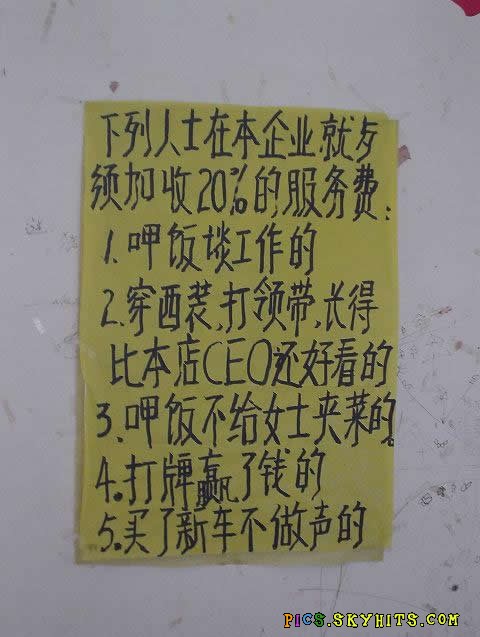 下列人士在本企业就歺
须加收20%的服务费:
1.呷饭谈工作的
2.穿西装,打领带,长得
比本店CEO还好看的
3.呷饭不给女士夹菜的。
4.打牌赢了钱的
5.买了新车不做声的
PICS.SKYHITS.COM